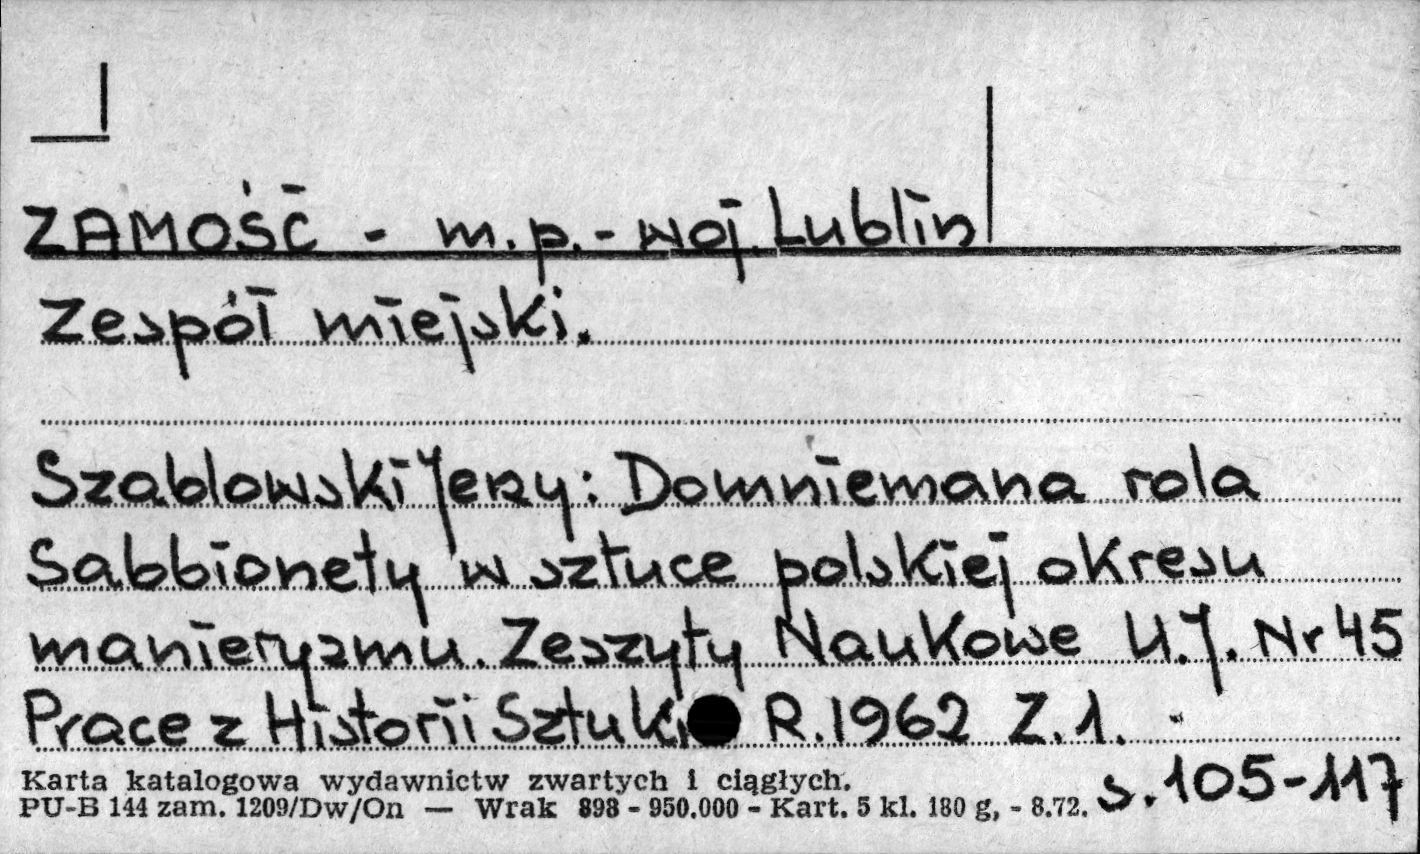 ZAMOŚĆ - m.p. - woj. Lublin
Zespół miejski.
Szablowski Jerzy: Domniemana rola
Sabbionety w sztuce polskiej okresu
manieryzmu. Zeszyty Naukowe U.J. Nr 45
Prace z Historii Sztuki R.1962 Z.1.
s.105-117
Karta katalogowa wydawnictw zwartych i ciągłych.
PU-B 144 zam. 1209/Dw/On — Wrak 898 - 950.000 - Kart. 5 kl. 180 g, - 8.72.